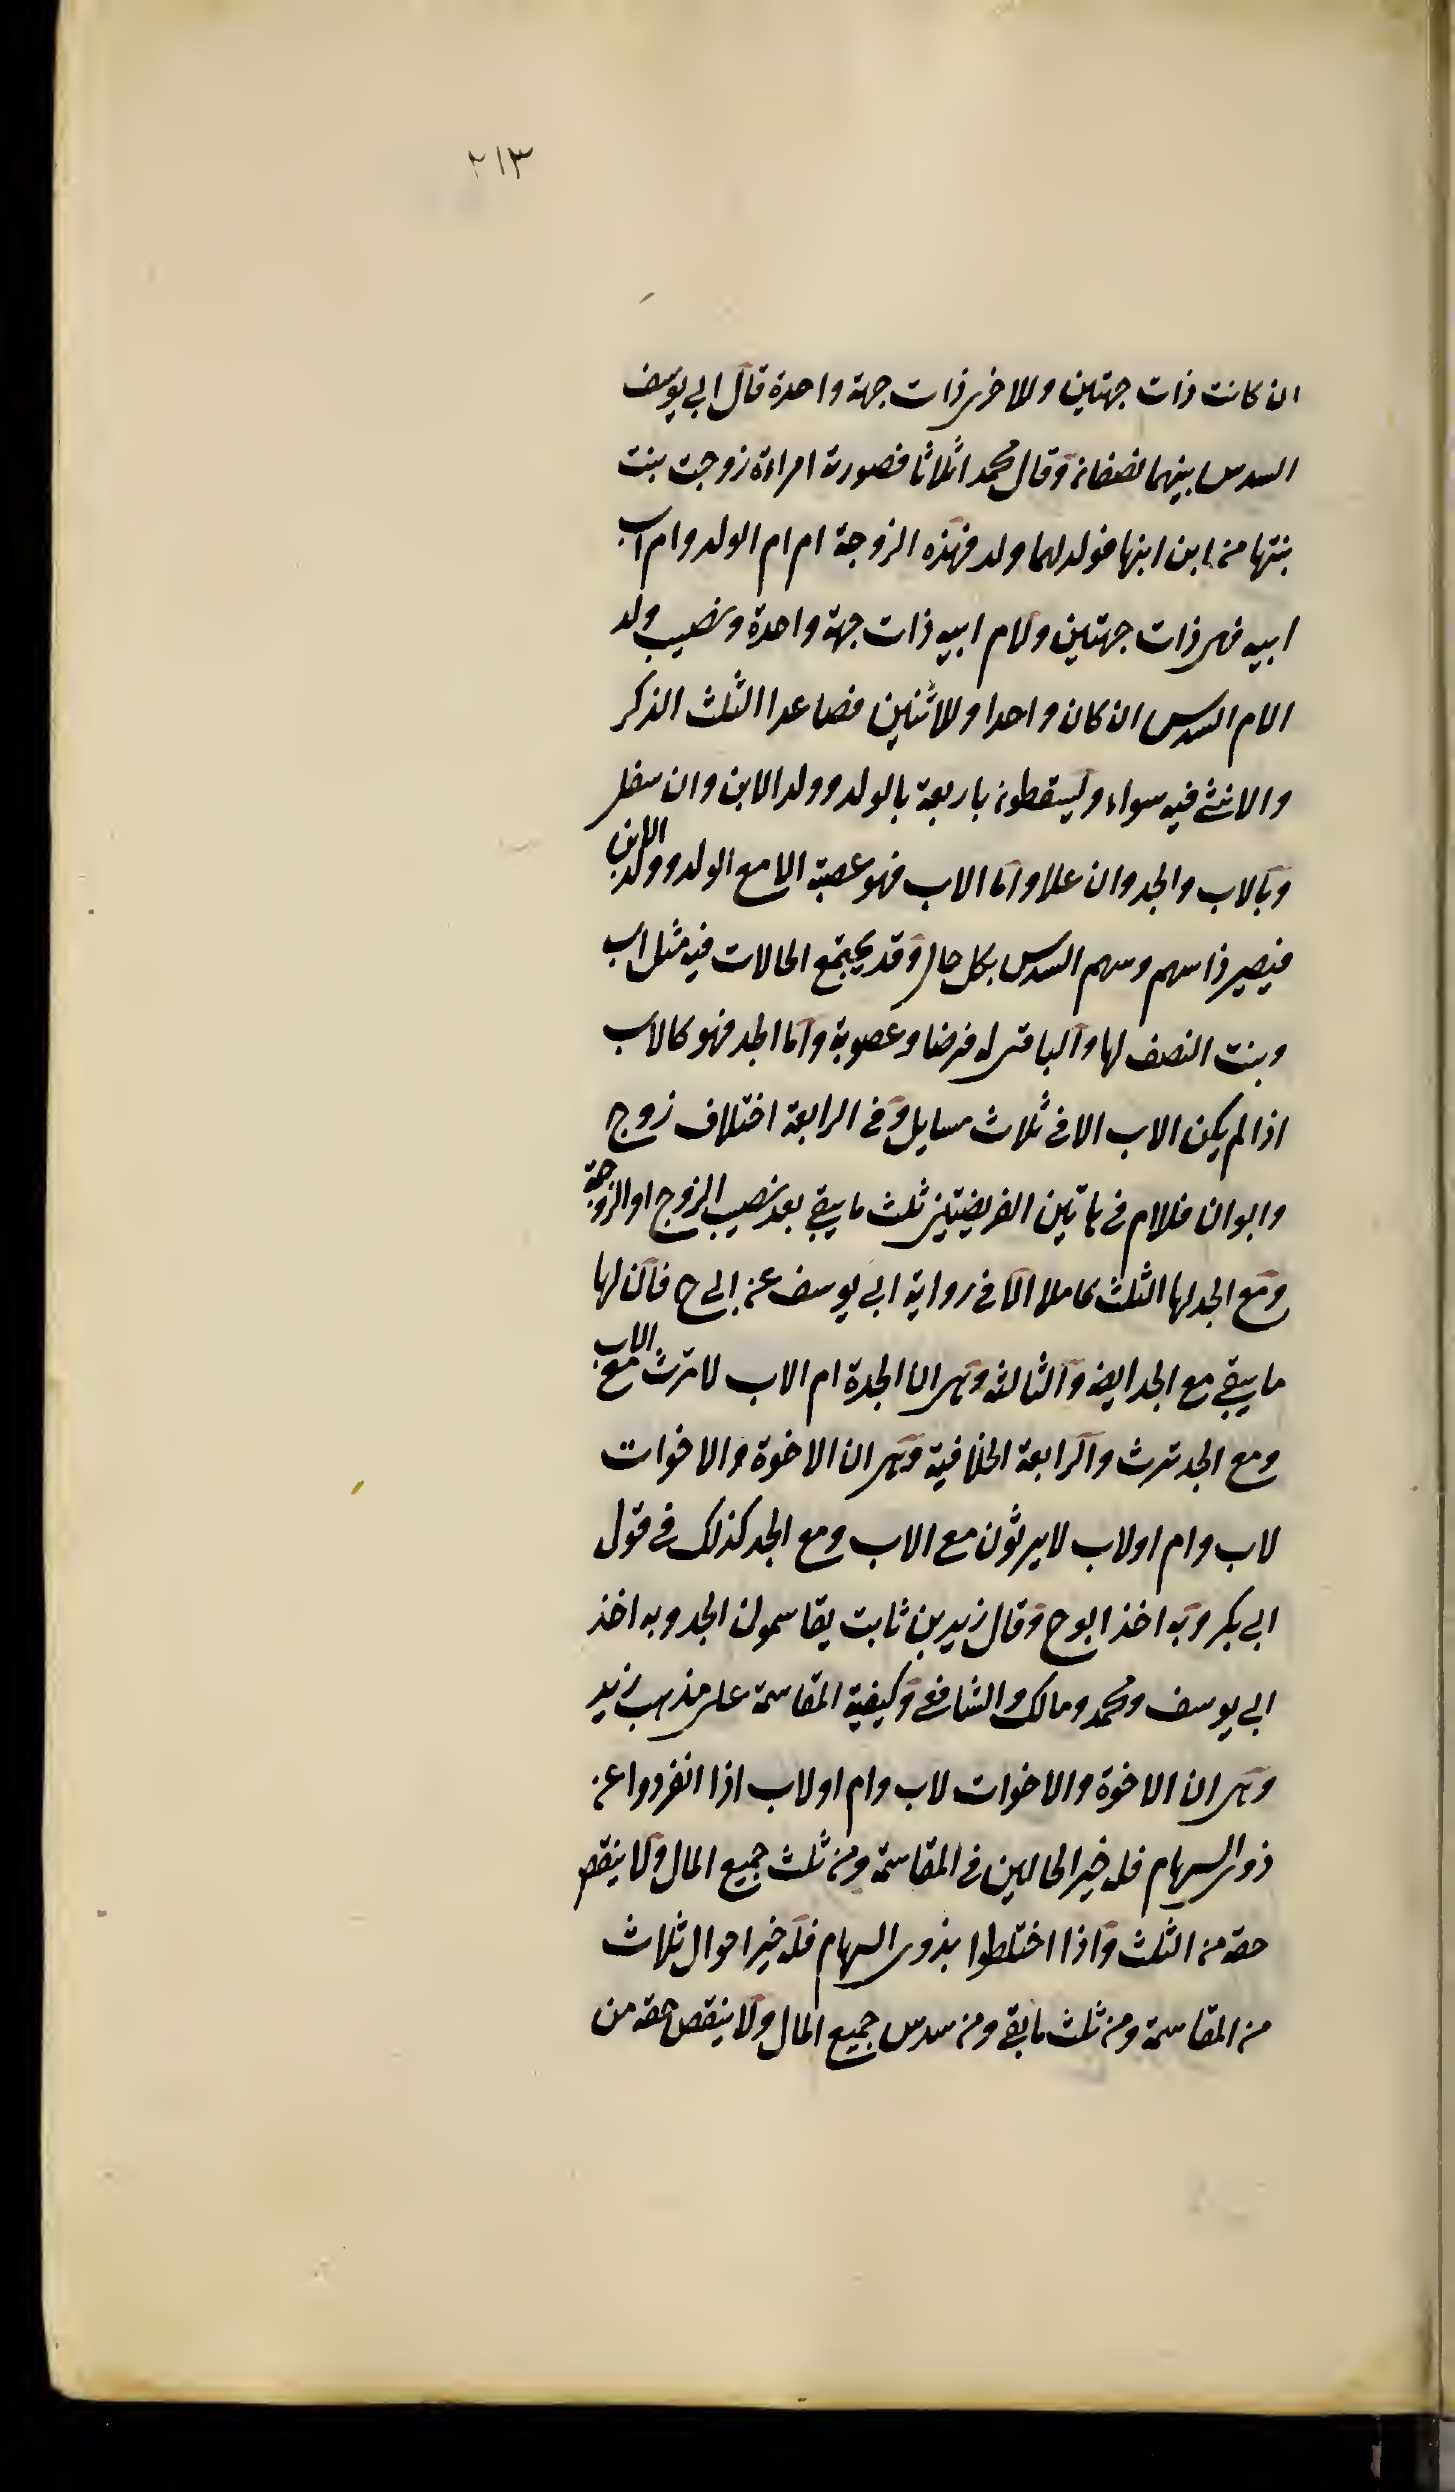 ٢١٣
ان كانت ذات جهتين والاخرى ذات جهة واحدة قال ابي يوسف
السدس بينهما نصفان وقال محمد اثلاثا فصورته امراءة زوجت بنت
بنتها من ابن ابنها فولد لهما ولد فهذه الزوجة ام ام الولد وام اب
ابيه فهى ذات جهتين ولام ابيه ذات جهة واحدة ونصيب ولد
الام السدس ان كان واحدا وللاثنين فصاعدا الثلث الذكر
والانثى فيه سواء ويسقطون باربعة بالولد وولد الابن وان سفل
وبالاب والجد وان علا واما الاب فهو عصبة الا مع الولد وولد الابن
فيصير ذا سهم وسهم السدس بكل حال وقد يجتمع الحالات فيه مثل اب
وبنت النصف لها والباقى له فرضا وعصوبة واما الجد فهو كالاب
اذا لم يكن الاب الا فى ثلاث مسايل وفى الرابعة اختلاف زوج
وابوان فللام فى هاتين الفريضتين ثلث ما يبقى بعد نصيب الزوج او الزوجة
ومع الجد لها الثلث كاملا الا فى رواية ابي يوسف عن ابى ح فان لها
ما يبقى مع الجد ايضا والثالثة وهى ان الجدة ام الاب لا ترث مع الاب
ومع الجد ترث والرابعة الخلافية وهى ان الاخوة والاخوات
لاب وام او لاب لا يرثون مع الاب ومع الجد كذلك فى قول
ابي بكر وبه اخذ ابو ح وقال زيد بن ثابت يقاسمون الجد وبه اخذ
ابي يوسف ومحمد ومالك والشافعى وكيفية المقاسمة على مذهب زيد
وهى ان الاخوة والاخوات لاب وام او لاب اذا انفردوا عن
ذوى السهام فله خير الحالين فى المقاسمة ومن ثلث جميع المال ولا ينقص
حقه من الثلث واذا اختلطوا بذوى السهام فله خير احوال ثلاث
من المقاسمة ومن ثلث ما بقى ومن سدس جميع المال ولا ينقص حقه من